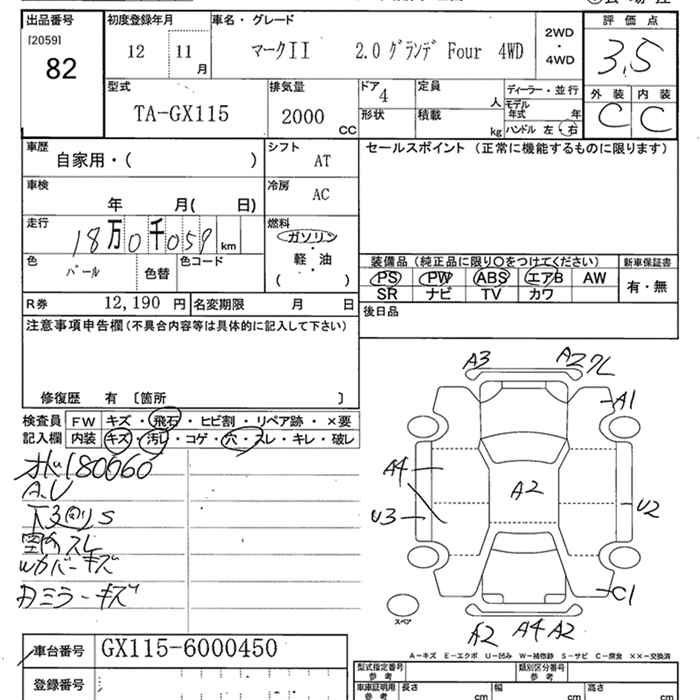 出品番号 初度登録年月 車名・グレード 評価点
[2059] 82
12 11 月 マークII 2.0 グランデ Four 4WD 2WD・4WD 3.5
型式 排気量 ドア 定員 ディーラー・並行 外装 内装
TA-GX115 2000 CC 4 人 モデル年式 年 C C
形状 積載 kg ハンドル 左・右
車歴 シフト セールスポイント(正常に機能するものに限ります)
自家用・( ) AT
車検 冷房
年 月( 日) AC
走行 燃料
18万0千059 km ガソリン・軽油
( )
色 色替 色コード
パール
装備品(純正品に限り○をつけてください) 新車保証書
PS PW ABS エアB AW 有・無
SR ナビ TV カワ
R券 12,190 円 名変期限 月 日
後日品
注意事項申告欄(不具合内容等は具体的に記入して下さい)
修復歴 有 〔箇所 〕
検査員 FW キズ・飛石・ヒビ割・リペア跡・×要
記入欄 内装 キズ・汚レ・コゲ・穴・スレ・キレ・破レ
180060
A.U
下回りS
スレ
カバーキズ
ミラーキズ
A3 A2 ワレ
A1
A4 A2
U3 U2
C1
スペア
A2 A4 A2
A-キズ E-エクボ U-凹み W-補修跡 S-サビ C-腐食 ××-交換済
車台番号 GX115-6000450
登録番号
型式指定番号 参考 類別区分番号 参考
車庫証明用 参考 長さ cm 幅 cm 高さ cm